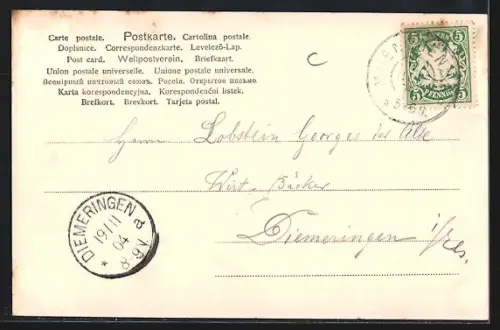 Carte postale. Postkarte. Cartolina postale.
Dopisnice. Correspondenzkarte. Levelező-Lap.
Post card. Weltpostverein. Briefkaart.
Union postale universelle. Unione postale universale.
Всемірный почтовый союзъ. Россія. Открытое письмо.
Karta korespondencyjna. Korespondenční lístek.
Brefkort. Brevkort. Tarjeta postal.
5 5
PFENNIG
Herrn Lobstein Georges
Wirt-Bäcker
Diemeringen
DIEMERINGEN
19/III
04
8-9V.